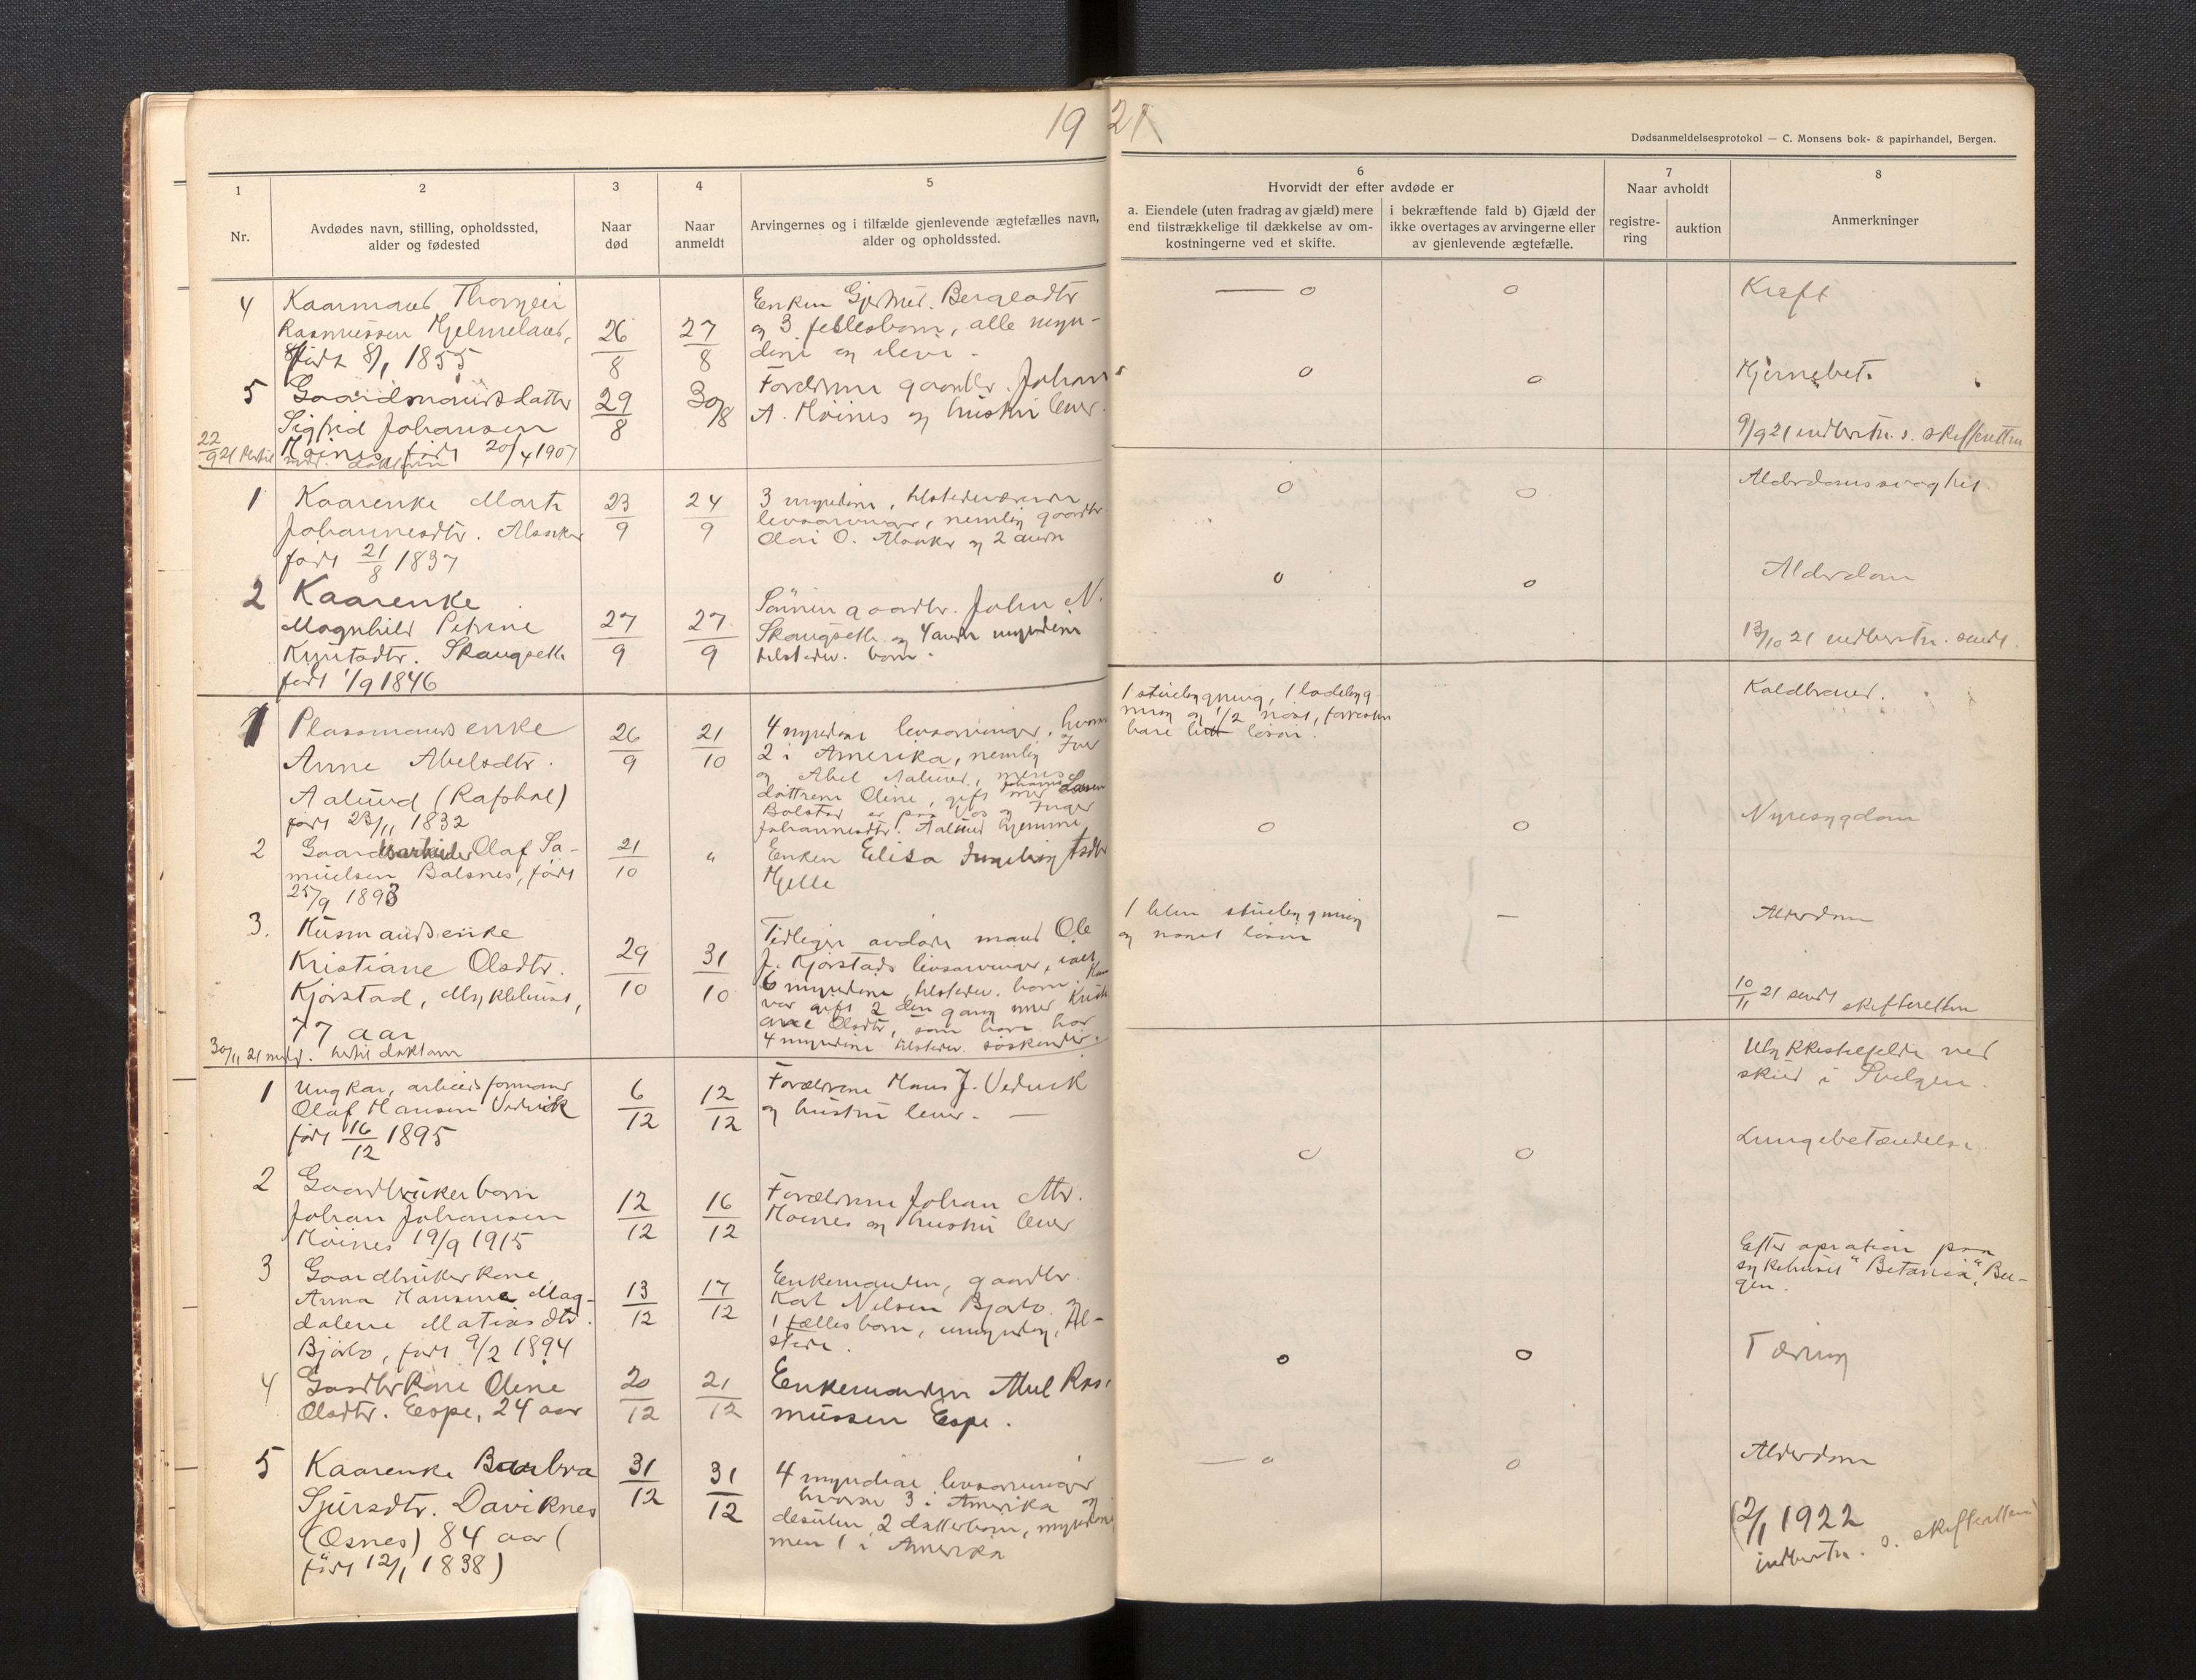 19 21
Dødsanmeldelsesprotokol — C. Monsens bok- & papirhandel, Bergen.
1
Nr.
2
Avdødes navn, stilling, opholdssted,
alder og fødested
3
Naar
død
4
Naar
anmeldt
5
Arvingernes og i tilfælde gjenlevende ægtefælles navn,
alder og opholdssted.
6
Hvorvidt der efter avdøde er
a. Eiendele (uten fradrag av gjæld) mere
end tilstrækkelige til dækkelse av om-
kostningerne ved et skifte.
i bekræftende fald b) Gjæld der
ikke overtages av arvingerne eller
av gjenlevende ægtefælle.
7
Naar avholdt
registre-
ring
auktion
8
Anmerkninger
4
Kaarmand Thorgeir
Rasmussen Hjelmeland,
født 8/1 1855
26/8
27/8
Enken Gjertrud Bergesdtr
og 3 fellesborn, alle myn-
dine og
— o
o
Kræft
5
Gaardmandsdatter
Sigfrid Johansen
Hoines født 20/4 1907
29/8
30/8
Foreldrene gaardbr. Johan
A. Hoines og hustru lever.
o
o
Hjernebet.
22/9 21
9/9 21 indberetn. s. skifteretten
1
Kaarenke Marte
Johannesdtr. Alsaker
født 21/8 1837
23/9
24/9
3 myndine, tilstedeværende
livsarvinger, nemlig gaardbr
O. Alsaker og 2 andre
o
o
Alderdomssvaghet
2
Kaarenke
Magnhild Petrine
Knutsdtr. Skaugseth
født 1/9 1846
27/9
27/9
Sönnen gaardbr. John N.
Skaugseth og 4 andre myndine
tilstedev. born.
o
o
Alderdom
13/10 21 indberetn. sendt.
1
Plassmands enke
Anne Abelsdtr.
Aalund (Rafshol)
født 23/11 1832
26/9
21/10
4 myndine livsarvinger, hvorav
2 i Amerika, nemlig Iver
og Abel Aalund, mens
dattrene Oline, gift med Larsen
Bolstad er paa Vos og Inger
Johannesdtr. Aalund hjemme
1 stuebygning, 1 ladebyg-
ning og 1/2 nöst, forresten
bare litt lösöre.
Koldbrand.
2
Gaardsarbeider Olaf Sa-
muelsen Balsnes, født
25/9 1893
21/10
"
Enken Elisa
Hjelle
o
o
Nyresygdom
3.
Husmandsenke
Kristiane Olsdtr.
Kjørstad, Myklebust,
77 aar
29/10
31/10
Tidligere avdöde mand Ole
J. Kjørstads livsarvinger, ialt
6 myndine tilstedev. born. Han
var gift 2 den gang med Kristi-
ane Olsdtr, som bare har
4 myndine tilstedev. söskender.
1 liten stuebygning
og noget lösöre
—
Alderdom
10/11 21 sendt skifteretten
30/11 21
1
Ungkar, arbeidsformand
Olaf Hansen Vedvik
født 16/12 1895
6/12
12/12
Forældrene Hans J. Vedvik
og hustru lever. —
Ulykkestilfelde ved
skud i Svelgen.
2
Gaardbruker barn
Johan Johansen
Hoines 19/9 1915
12/12
16/12
Forældrene Johan Mr.
Hoines og hustru lever
o
o
Lungebetændelse
3
Gaardbrukerkone
Anna Hansine Mag-
dalene Matiasdtr.
Bjørlo, født 9/2 1894
13/12
17/12
Enkemanden, gaardbr.
Karl Nilsen Bjørlo og
1 fælles barn, umyndig, til-
stede.
Efter opration paa
sykehuset "Betania", Ber-
gen.
4
Gaardbrkone Oline
Olsdtr. Espe, 24 aar
20/12
21/12
Enkemanden Abel Ras-
mussen Espe.
o
o
Tæring
5
Kaarenke Barbra
Sjursdtr. Daviknes
(Osnes) 84 aar (
født 12/1 1838)
31/12
31/12
4 myndine livsarvinger
hvorav 3 i Amerika og
desuten 2 datterborn, myndine
men 1 i Amerika
— o
o
Alderdom
(2/1 1922
indberetn. s. skifteretten)